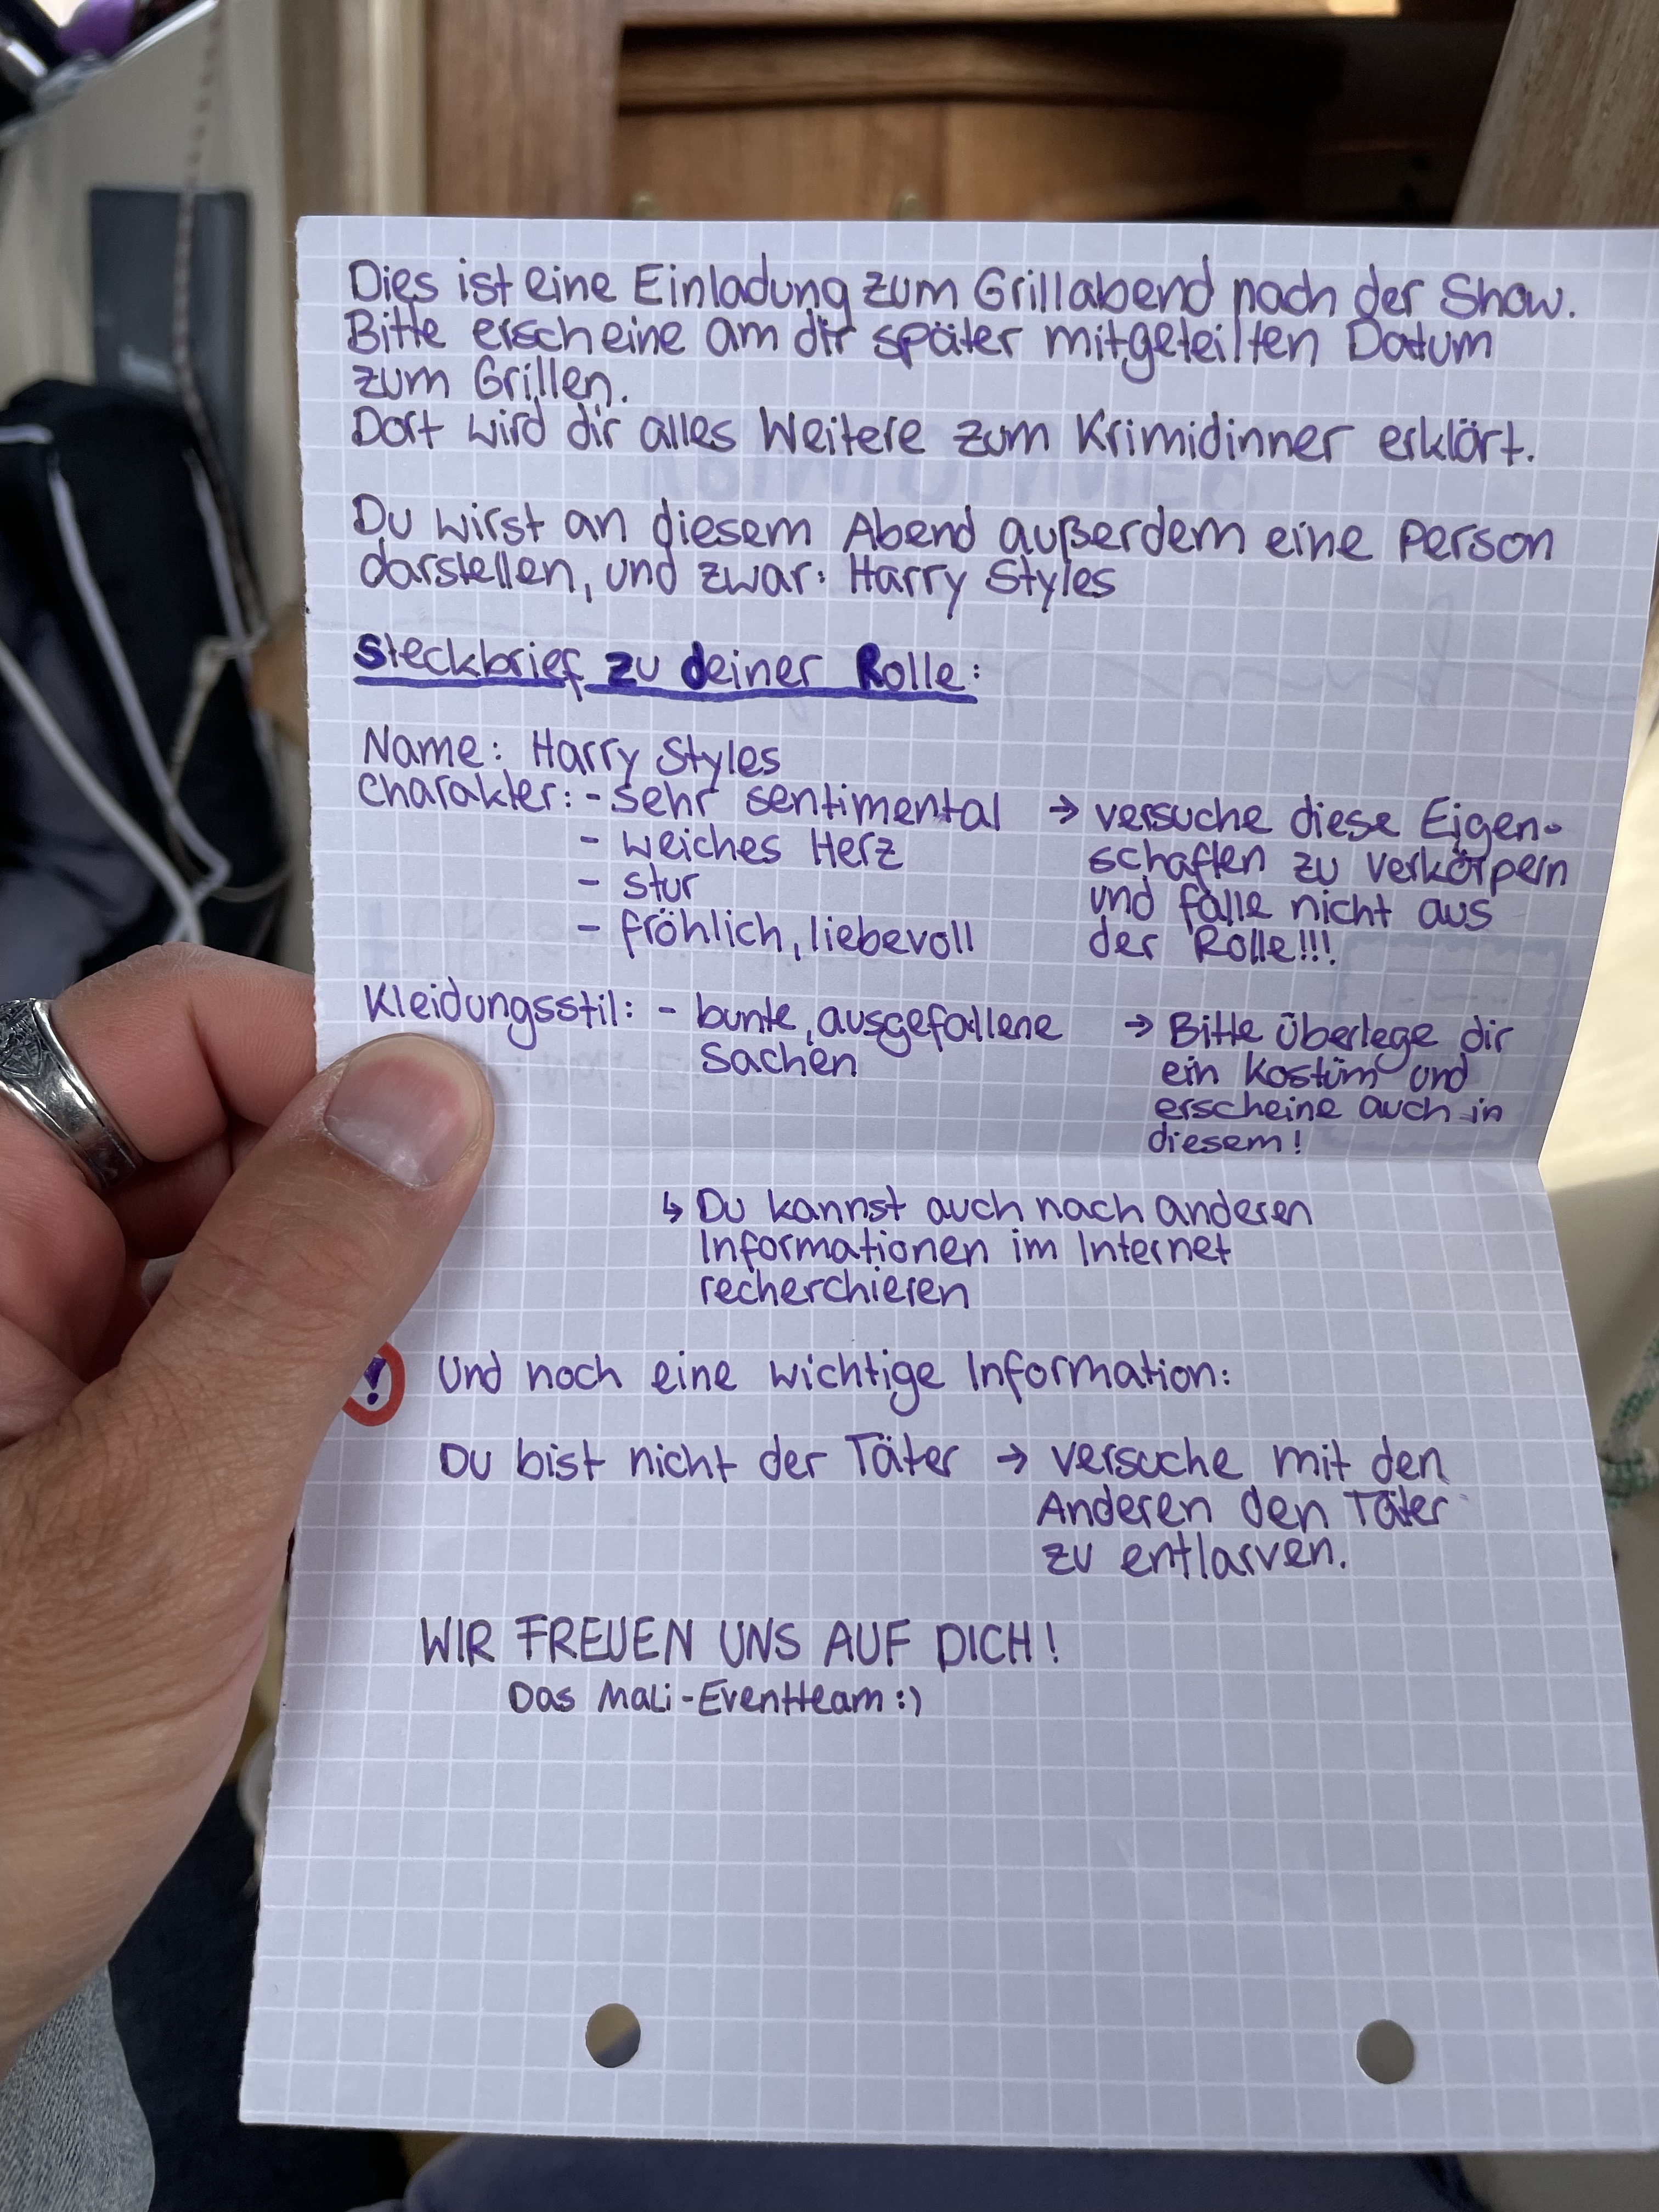 Dies ist eine Einladung zum Grillabend nach der Show.
Bitte erscheine am dir später mitgeteilten Datum
zum Grillen.
Dort wird dir alles Weitere zum Krimidinner erklärt.
Du wirst an diesem Abend außerdem eine Person
darstellen, und zwar: Harry Styles
Steckbrief zu deiner Rolle:
Name: Harry Styles
Charakter: - sehr sentimental
- weiches Herz
- stur
- fröhlich, liebevoll
→ versuche diese Eigen-
schaften zu verkörpern
und falle nicht aus
der Rolle!!!
Kleidungsstil: - bunte, ausgefallene
Sachen
→ Bitte überlege dir
ein Kostüm und
erscheine auch in
diesem!
↳ Du kannst auch nach anderen
Informationen im Internet
recherchieren
! Und noch eine wichtige Information:
Du bist nicht der Täter → versuche mit den
Anderen den Täter
zu entlarven.
WIR FREUEN UNS AUF DICH!
Das MaLi-Eventteam :)